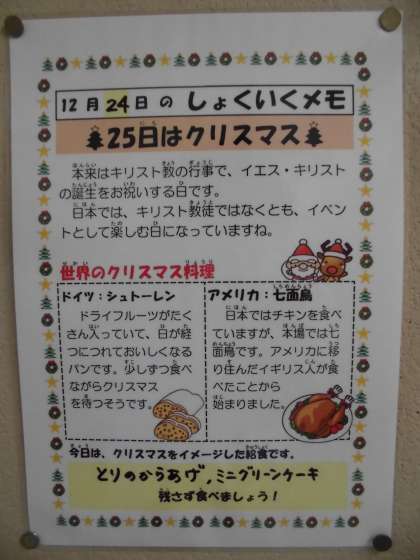 12月24日の しょくいくメモ
25日はクリスマス
本来はキリスト教の行事で、イエス・キリスト
の誕生をお祝いする日です。
日本では、キリスト教徒ではなくとも、イベン
トとして楽しむ日になっていますね。
世界のクリスマス料理
ドイツ：シュトーレン
ドライフルーツがたく
さん入っていて、日が経
つにつれておいしくなる
パンです。少しずつ食べ
ながらクリスマス
を待つそうです。
アメリカ：七面鳥
日本ではチキンを食べ
ていますが、本場では七
面鳥です。アメリカに移
り住んだイギリス人が食
べたことから
始まりました。
今日は、クリスマスをイメージした給食です。
とりのからあげ,ミニグリーンケーキ
残さず食べましょう！